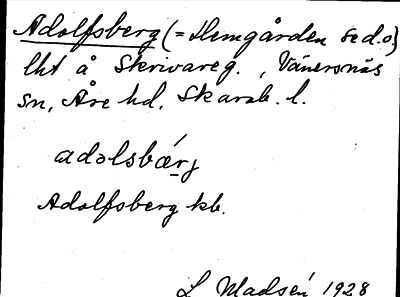 Adolfsberg (= Hemgården se d.o)
lht å Skrivareg., Vänersnäs
sn, Åse hd, Skarab. l.
adolsbærj
Adolfsberg kb.
L Madsén 1928